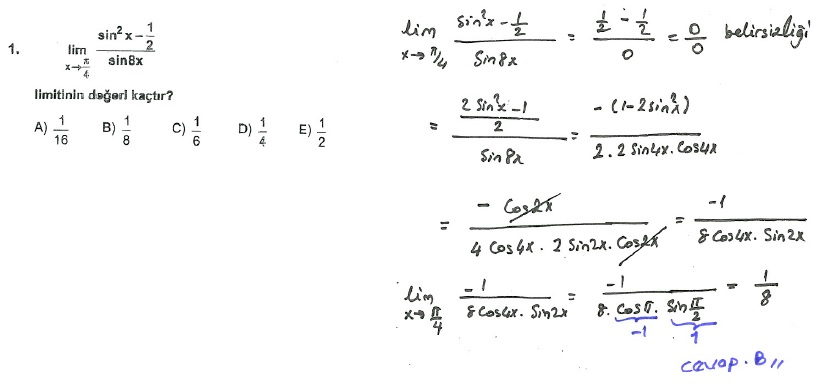 1. lim x→π/4 (sin²x − 1/2) / sin8x
limitinin değeri kaçtır?
A) 1/16 B) 1/8 C) 1/6 D) 1/4 E) 1/2
lim x→π/4 (sin²x − 1/2) / Sin8x = (1/2 − 1/2) / 0 = 0/0 belirsizliği
= ((2 Sin²x − 1) / 2) / Sin8x = −(1−2sin²x) / (2.2 Sin4x.Cos4x)
= − Cos2x / (4 Cos4x . 2 Sin2x . Cos2x) = −1 / (8 Cos4x. Sin2x)
lim x→π/4 −1 / (8Cos4x. Sin2x) = −1 / (8. Cosπ. Sin π/2) = 1/8
−1 1
cevap.B,,